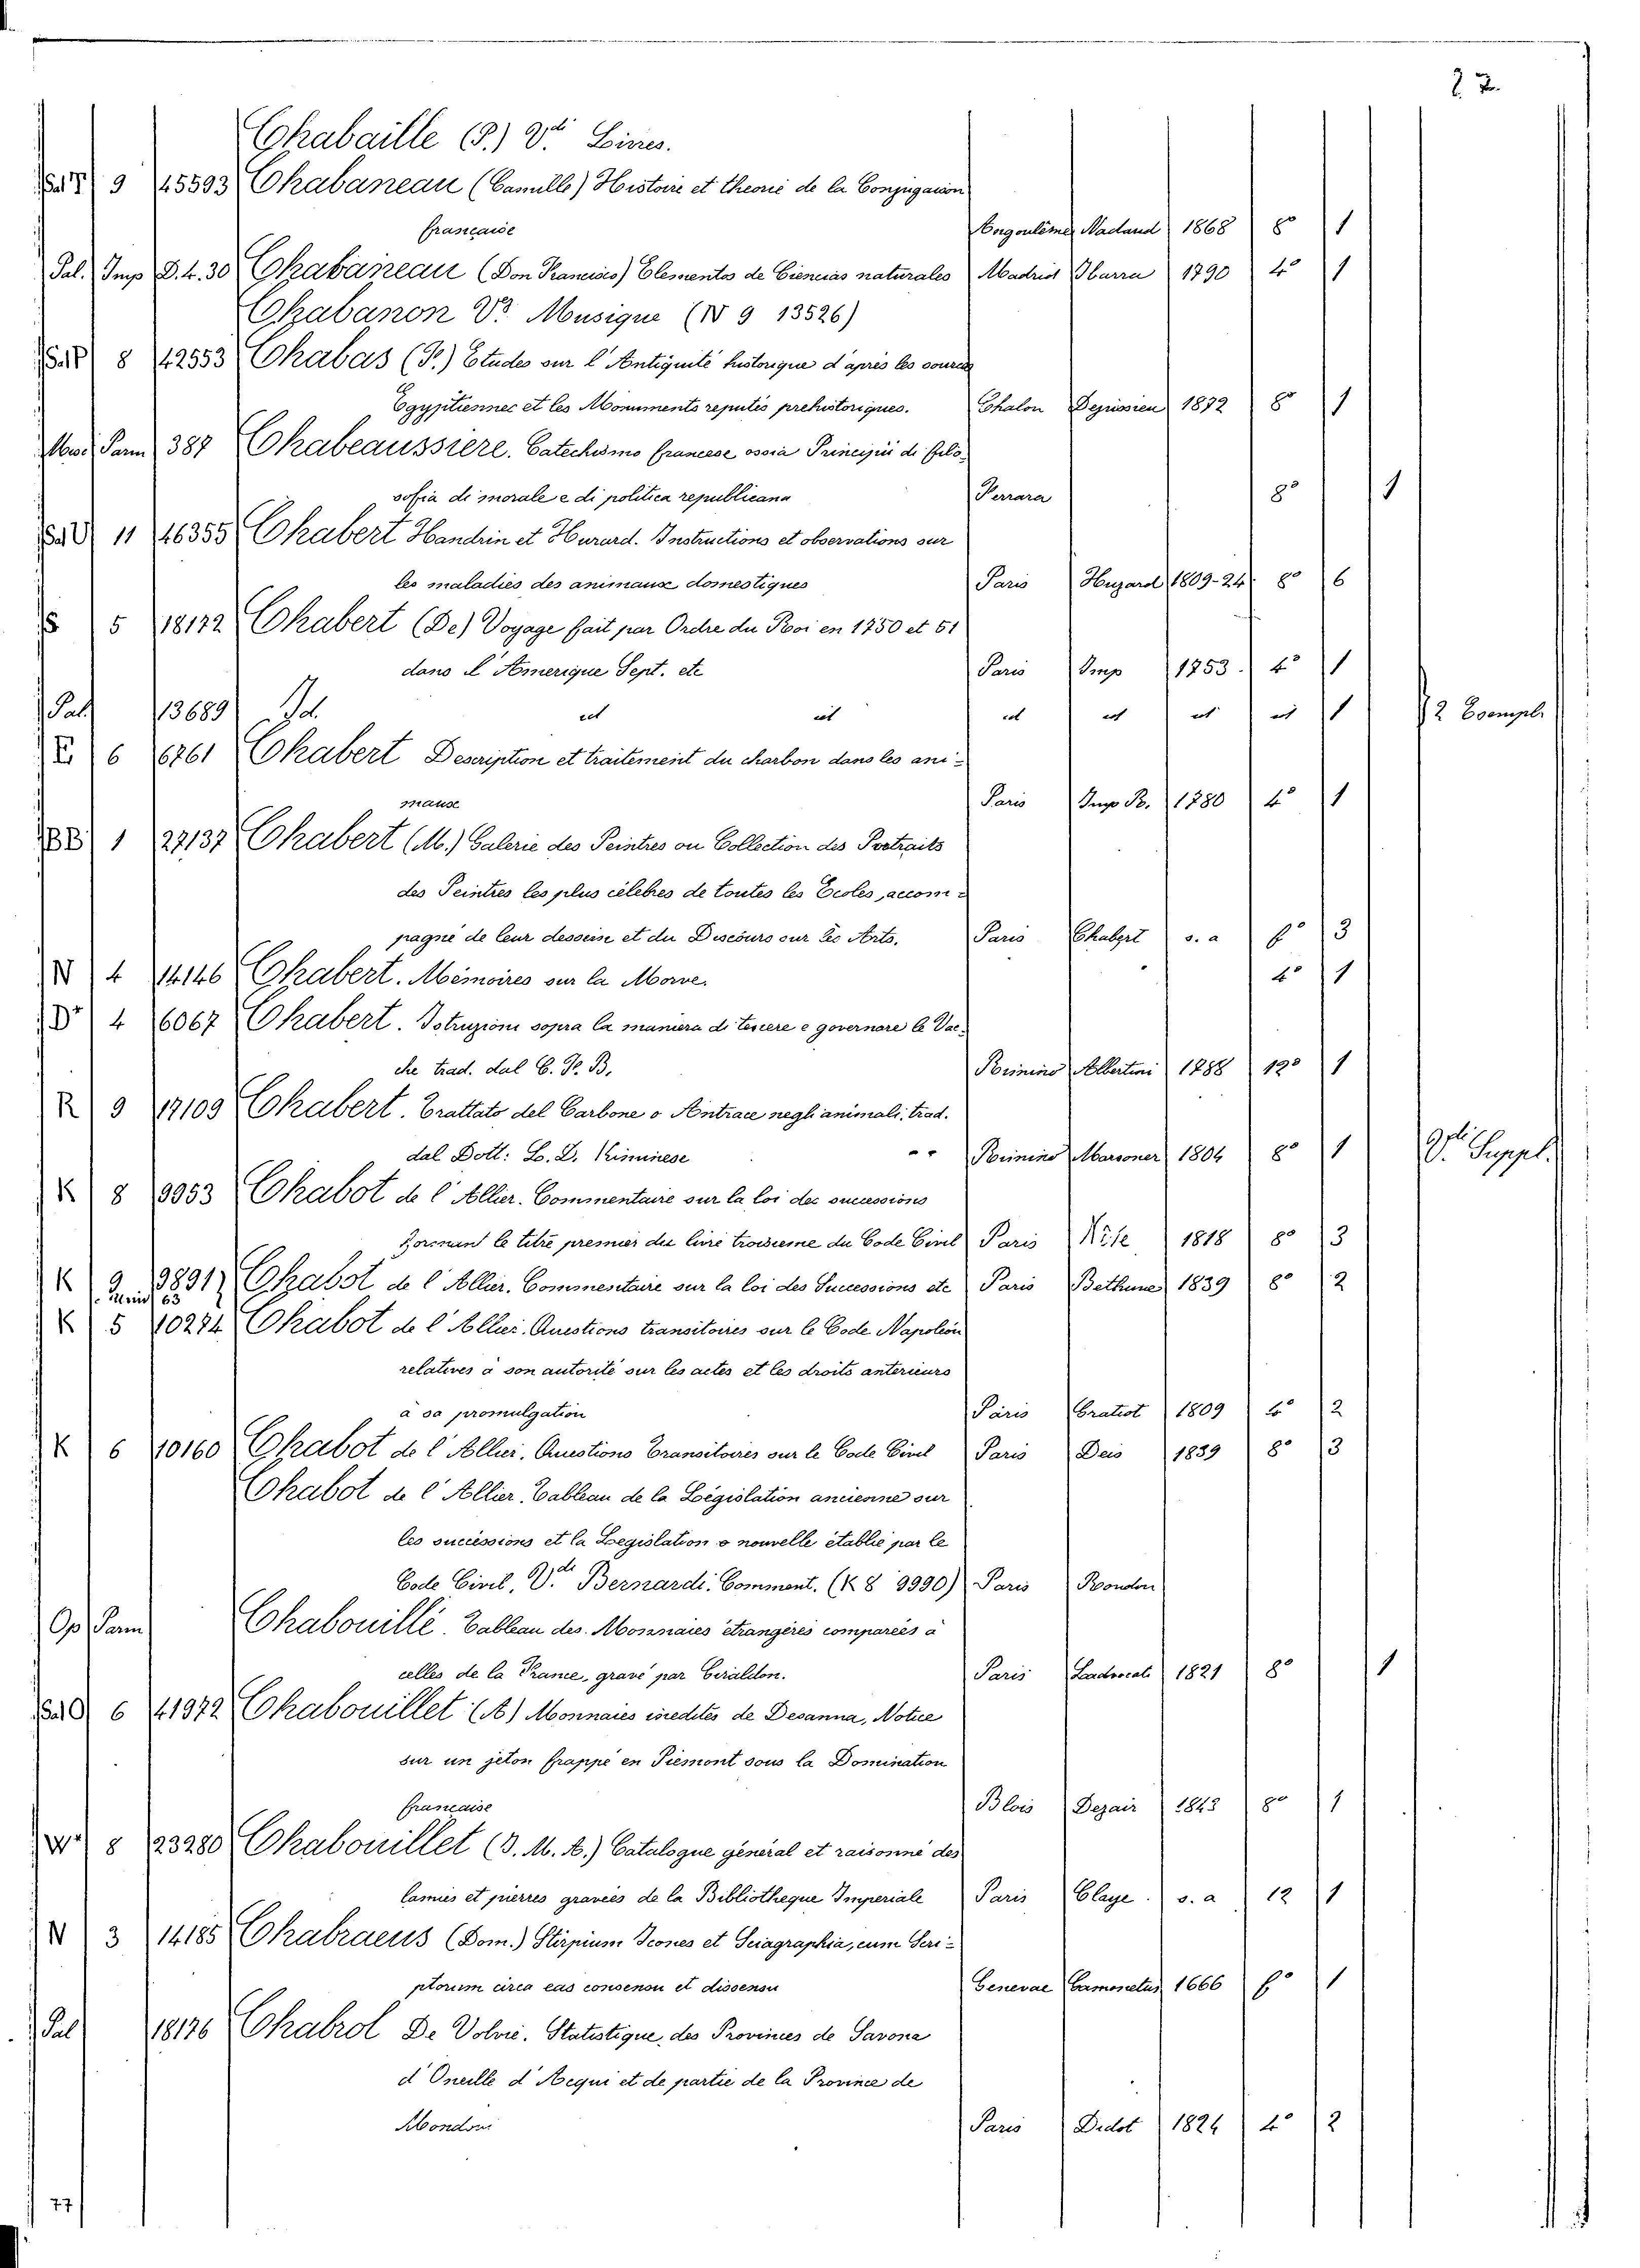 22
Chabaille (P.) Vdi Livres.
Sal T 9 45593 Chabaneau (Camille) Histoire et theorie de la Conjugaison
française Angoulème Nadaud 1868 8° 1
Pal. Imp D. 4. 30 Chabaneau (Don Francisco) Elementos de Ciencias naturales Madrid Ibarra 1790 4° 1
Chabanon Vdi Musique (N 9 13526)
Sal P 8 42553 Chabas (F.) Etudes sur l'Antiquité historique d'après les sources
Egyptiennes et les Monuments reputés prehistoriques. Chalon Dejussieu 1872 8° 1
Misc Parm 387 Chabeaussiere. Catechismo francese ossia Principii di filo-
sofia di morale e di politica republicana Ferrara 8° 1
Sal U 11 46355 Chabert Handrin et Hurard. Instructions et observations sur
les maladies des animaux domestiques Paris Huzard 1809-24 8° 6
S 5 18172 Chabert (De) Voyage fait par Ordre du Roi en 1750 et 51
dans l'Amerique Sept. etc Paris Imp 1753. 4° 1
Pal 13689 Id. id id id id id id 1 2 Esempl.
E 6 6761 Chabert Description et traitement du charbon dans les ani-
maux Paris Imp R. 1780 4° 1
BB 1 27137 Chabert (M.) Galerie des Peintres ou Collection des Portraits
des Peintres les plus célebres de toutes les Ecoles, accom-
pagné de leur dessein et du Discours sur les Arts. Paris Chabert s. a f° 3
N 4 14146 Chabert. Mémoires sur la Morve. 4° 1
D* 4 6067 Chabert. Istruzioni sopra la maniera di tenere e governare le Vac-
che trad. dal C. F. B. Rimino Albertini 1788 12° 1
R 9 17109 Chabert. Trattato del Carbone o Antrace negli animali, trad.
dal Dott: L. D. Riminese -- Rimino Marsoner 1804 8° 1 Vdi Suppl.
K 8 9953 Chabot de l'Allier. Commentaire sur la loi des successions
Formant le titre premier du livre troisieme du Code Civil Paris Nève 1818 8° 3
K 9 9891 Chabot de l'Allier. Commentaire sur la loi des Successions etc Paris Bethune 1839 8° 2
63
K 5 10274 Chabot de l'Allier. Questions transitoires sur le Code Napoléon
relatives à son autorité sur les actes et les droits anterieurs
à sa promulgation Paris Gratiot 1809 4° 2
K 6 10160 Chabot de l'Allier. Questions Transitoires sur le Code Civil Paris Deis 1839 8° 3
Chabot de l'Allier. Tableau de la Législation ancienne sur
les successions et la Legislation o nouvelle établie par le
Code Civil, Vdi Bernardi: Comment. (K 8 9990) Paris Rondon
Op Parm Chabouillé. Tableau des Monnaies étrangéres comparées à
celles de la France, gravé par Giraldon. Paris Ladvocat 1821 8° 1
Sal O 6 41972 Chabouillet (A) Monnaies inedites de Desanna, Notice
sur un jeton frappé en Piemont sous la Domination
francaise Blois Dezair 1843 8° 1
W* 8 23280 Chabouillet (J. M. A.) Catalogue général et raisonné des
camies et pierres gravées de la Bibliotheque Imperiale Paris Claye. s. a 12 1
N 3 14185 Chabraeus (Dom.) Stirpium Icones et Sciagraphia, cum Scri-
ptorum circa eas consensu et dissensu Genevae Gamonetus 1666 f° 1
Pal 18176 Chabrol De Volvic. Statistique des Provinces de Savona
d'Oneille d'Acqui et de partie de la Province de
Mondovi Paris Didot 1824 4° 2
77